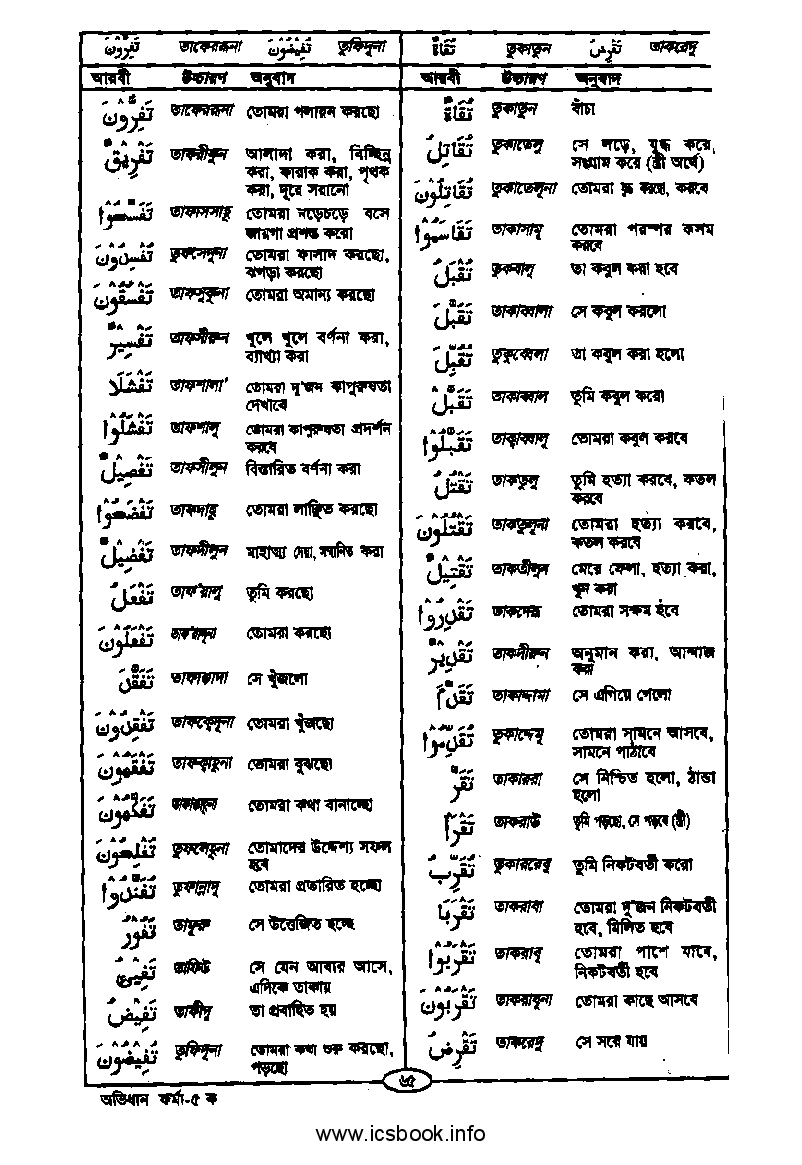 تَفِرُّونَ তাফেররূনা تُفِيْضُوْنَ তুফিদূনা
আরবী উচ্চারণ অনুবাদ
تَفِرُّوْنَ তাফেররূনা তোমরা পলায়ন করছো
تَفْرِيْقٌ তাফরীকুন আলাদা করা, বিচ্ছিন্ন
করা, ফারাক করা, পৃথক
করা, দূরে সরানো
تَفَسَّحُوْا তাফাসসাহু তোমরা নড়েচড়ে বসে
জায়গা প্রশস্ত করো
تُفْسِدُوْنَ তুফসেদূনা তোমরা ফাসাদ করছো,
ঝগড়া করছো
تَفْسُقُوْنَ তাফসুকূনা তোমরা অমান্য করছো
تَفْسِيْرٌ তাফসীরুন খুলে খুলে বর্ণনা করা,
ব্যাখ্যা করা
تَفْشَلَا তাফশালা' তোমরা দু'জন কাপুরুষতা
দেখাবে
تَفْشَلُوْا তাফশালূ তোমরা কাপুরুষতা প্রদর্শন
করবে
تَفْصِيْلٌ তাফসীলুন বিস্তারিত বর্ণনা করা
تَفْضَحُوْا তাফদাহু তোমরা লাঞ্ছিত করছো
تَفْضِيْلٌ তাফদীলুন মাহাত্ম্য দেয়া, সম্মানিত করা
تَفْعَلُ তাফ'য়ালু তুমি করছো
تَفْعَلُوْنَ তাফ'য়ালূনা তোমরা করছো
تَفَقَّدَ তাফাক্কাদা সে খুঁজলো
تَفْقِدُوْنَ তাফকেদূনা তোমরা খুঁজছো
تَفْقَهُوْنَ তাফকাহূনা তোমরা বুঝছো
تَفَكَّهُوْنَ তাফাক্কাহূনা তোমরা কথা বানাচ্ছো
تُفْلِحُوْنَ তুফলেহূনা তোমাদের উদ্দেশ্য সফল
হবে
تُفَنِّدُوْا তুফান্নেদূ তোমরা প্রতারিত হচ্ছো
تَفُوْرُ তাফূরু সে উত্তেজিত হচ্ছে
تَفِيْئَ তাফিউ সে যেন আবার আসে,
এদিকে তাকায়
تَفِيْضُ তাফীদু তা প্রবাহিত হয়
تُفِيْضُوْنَ তুফিদূনা তোমরা কথা শুরু করছো,
পড়ছো
تُقَاةً তুকাতুন تَقْرِضُ তাকরেদু
আরবী উচ্চারণ অনুবাদ
تُقَاةً তুকাতুন বাঁচা
تُقَاتِلُ তুকাতেলু সে লড়ে, যুদ্ধ করে,
সংগ্রাম করে (স্ত্রী অর্থে)
تُقَاتِلُوْنَ তুকাতেলূনা তোমরা যুদ্ধ করছো, করবে
تَقَاسَمُوْا তাকাসামূ তোমরা পরস্পর কসম
করবে
تُقْبَلُ তুকবালু তা কবুল করা হবে
تَقَبَّلَ তাকাব্বালা সে কবুল করলো
تُقُبِّلَ তুকুব্বেলা তা কবুল করা হলো
تَقَبَّلْ তাকাব্বাল তুমি কবুল করো
تَقَبَّلُوْا তাকাব্বালূ তোমরা কবুল করবে
تَقْتُلُ তাকতুলু তুমি হত্যা করবে, কতল
করবে
تَقْتُلُوْنَ তাকতুলূনা তোমরা হত্যা করবে,
কতল করবে
تَقْتِيْلٌ তাকতীলুন মেরে ফেলা, হত্যা করা,
খুন করা
تَقْدِرُوْا তাকদেরূ তোমরা সক্ষম হবে
تَقْدِيْرٌ তাকদীরুন অনুমান করা, আন্দাজ
করা
تَقَدَّمَ তাকাদ্দামা সে এগিয়ে গেলো
تُقَدِّمُوْا তুকাদ্দেমূ তোমরা সামনে আসবে,
সামনে পাঠাবে
تَقَرَّ তাকাররা সে নিশ্চিত হলো, ঠান্ডা
হলো
تَقْرَأُ তাকরাউ তুমি পড়ছো, সে পড়বে (স্ত্রী)
تُقَرِّبُ তুকাররেবু তুমি নিকটবর্তী করো
تَقْرَبَا তাকরাবা তোমরা দু'জন নিকটবর্তী
হবে, মিলিত হবে
تَقْرَبُوْا তাকরাবূ তোমরা পাশে যাবে,
নিকটবর্তী হবে
تَقْرَبُوْنَ তাকরাবূনা তোমরা কাছে আসবে
تَقْرِضُ তাকরেদু সে সরে যায়
৬৫
অভিধান ফর্মা-৫ ক
www.icsbook.info